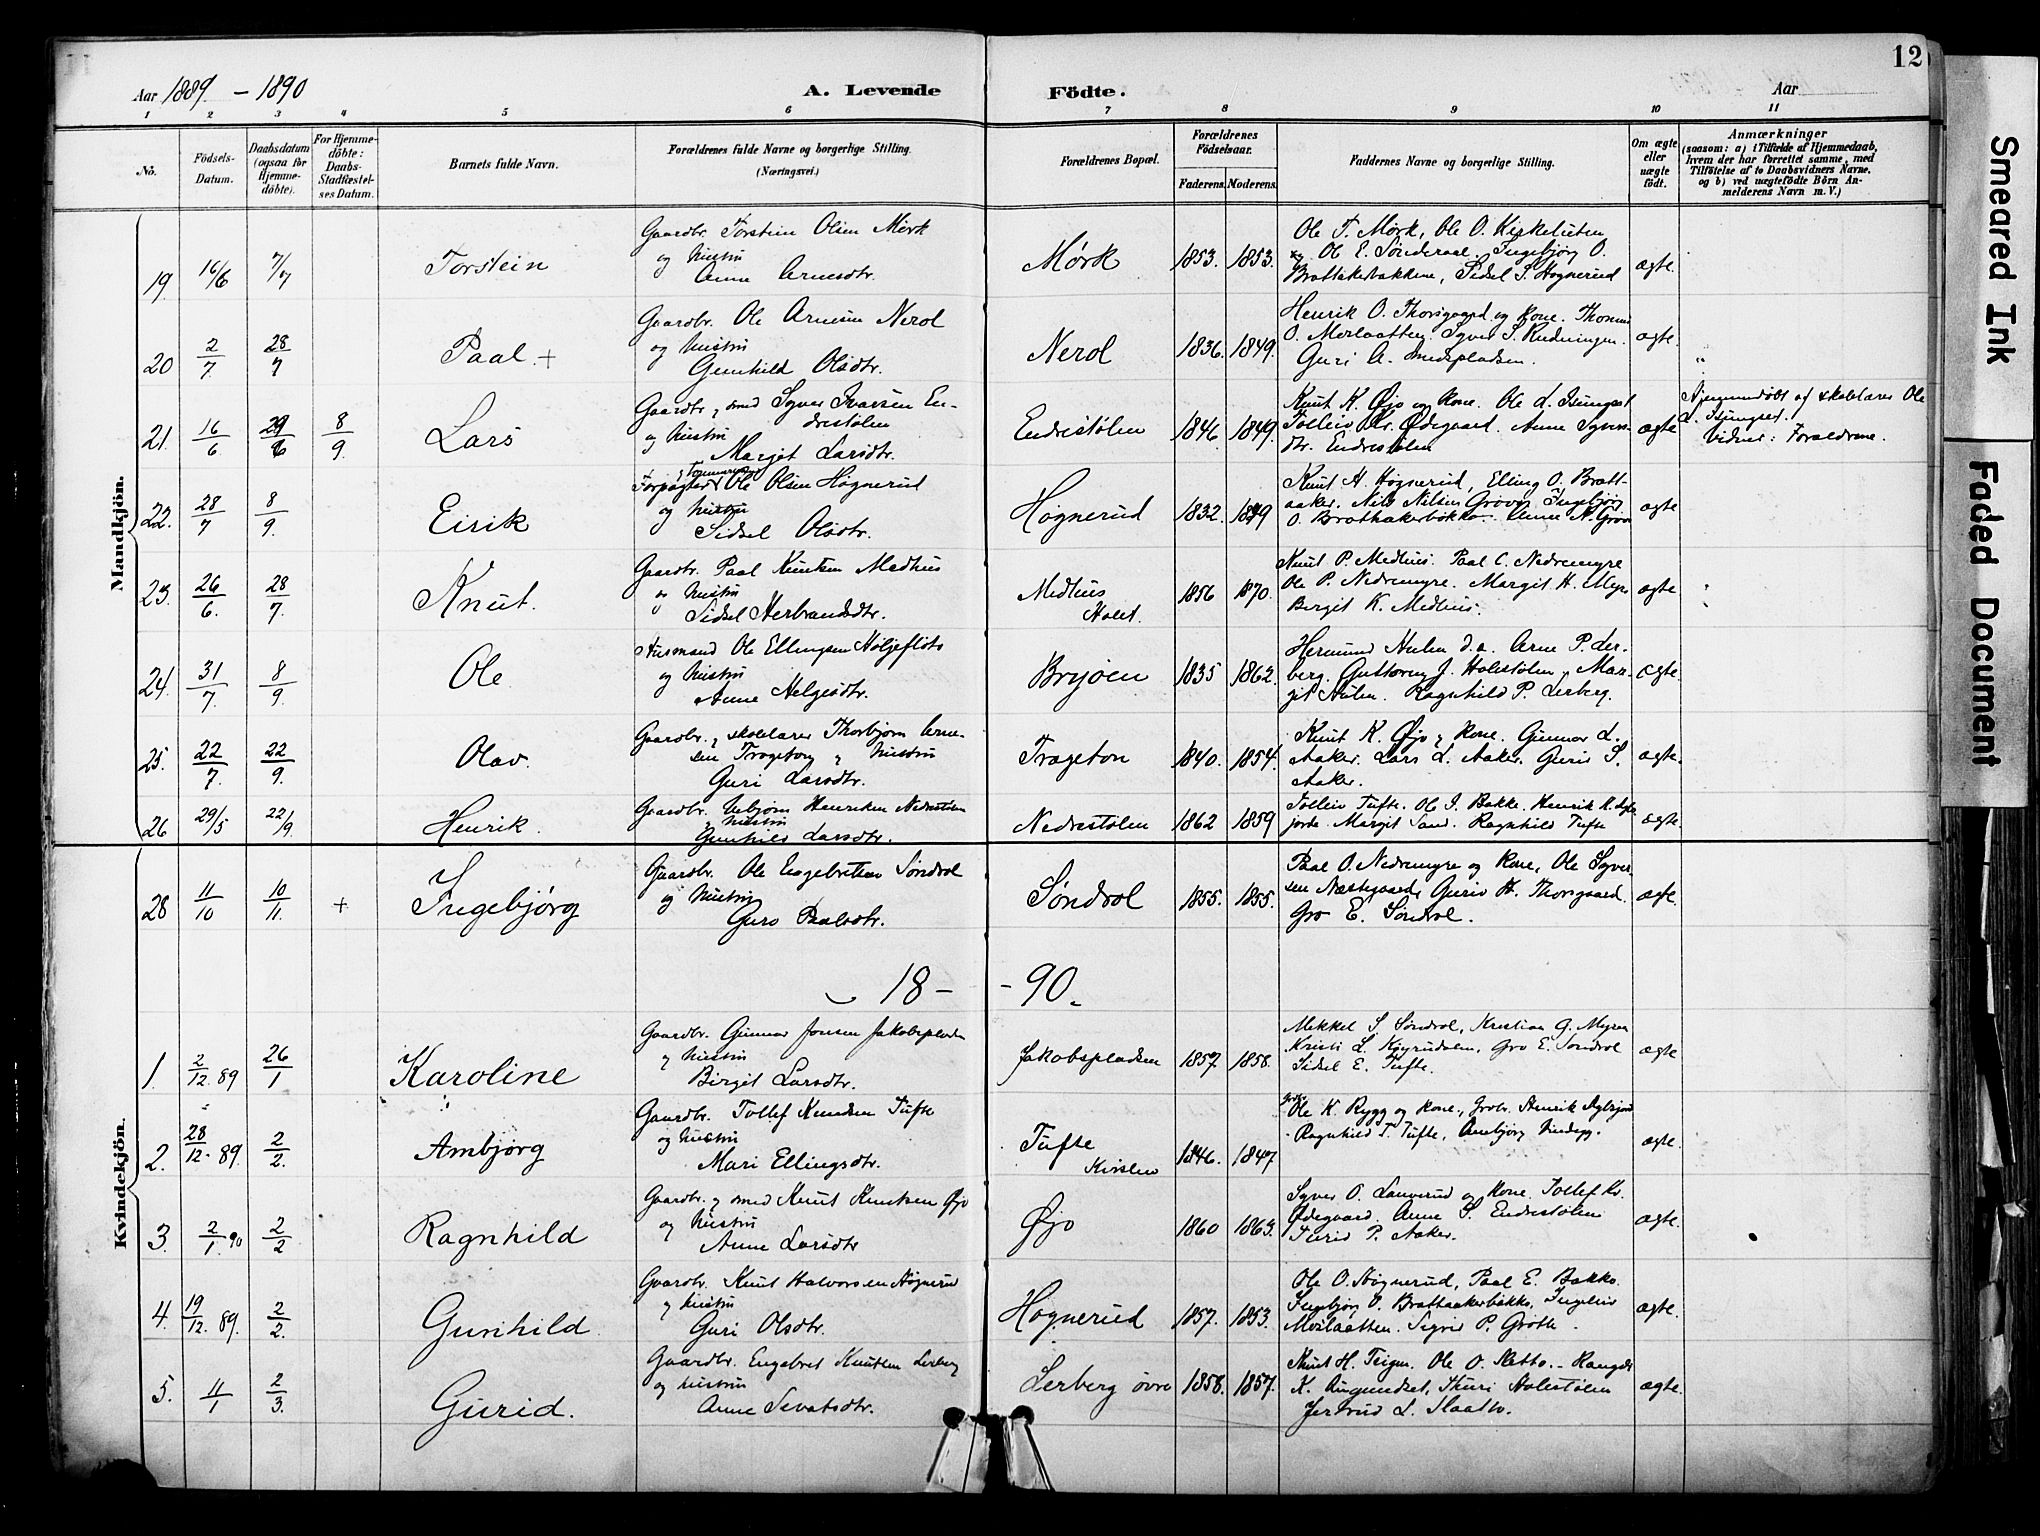 12
Aar 1889 – 1890
A. Levende Födte.
Aar
1 2 3 4 5 6 7 8 9 10 11
No.
Födsels-Datum.
Daabsdatum (ogsaa for Hjemme-döbte).
For Hjemme-döbte: Daabs-Stadfæstel-ses Datum.
Barnets fulde Navn.
Forældrenes fulde Navne og borgerlige Stilling.
(Næringsvei.)
Forældrenes Bopæl.
Forældrenes Födselsaar.
Faderens. Moderens.
Faddernes Navne og borgerlige Stilling.
Om ægte eller uægte födt.
Anmærkninger
(saasom: a) i Tilfælde af Hjemmedaab, hvem der har forrettet samme, med Tilföielse af to Daabsvidners Navne, og b) ved uægtefödte Börn Anmelderens Navn m. V.)
Mandkjön.
19. 16/6 7/7 Torstein
Gaardbr. Torstein Olsen Mørk
og Hustru
Anne Arnesdtr.
Mørk 1853. 1853.
Ole T. Mørk, Ole O. Kirkelieten
og Ole E. Sønderaal, Ingebjørg O.
Brattakerbakkene, Sidsel S. Høgnerud
ægte.
20 2/7 28/7 Paal +
Gaardbr. Ole Arnesen Nerol
og Hustru
Gunhild Olsdtr.
Nerol 1836. 1849.
Henrik O. Thorsgaard og Kone.
Guri A.
ægte.
21. 16/6 29/6 8/9 Lars
Gaardbr. og smed Syver Ivarsen En-
drestølen
og Hustru
Margit Larsdtr.
Endrestølen 1846. 1849.
Knut K. Øjo og Kone. Ole L.
Ødegaard. Anne Syvers-
dtr. Endrestølen
ægte
Hjemmedøbt af skolelærer Ole
Vidner: Forældrene.
22. 28/7 8/9 Eirik
Forpagter Ole Olsen Høgnerud
og Hustru
Sidsel Olsdtr.
Høgnerud 1832. 1849
Knut H. Høgnerud, Elling O. Bratt-
aaker. Nils Nilsen Grove, Ingebjørg
O. Brattakerbakke. Anne N. Grøv
ægte
23. 26/6. 28/7. Knut.
Gaardbr. Paal Knutsen Medhus
og Hustru
Sidsel Herbrandsdtr.
Medhus
Holet.
1856 1870.
Knut P. Medhus. Paal C. Nedremyre
Ole P. Nedremyre. Margit H. Myre
Birgit K. Medhus.
ægte.
24. 31/7. 8/9. Ole
Husmand Ole Ellingsen Høljeflots
og Hustru
Anne Helgesdtr.
Bryøen 1835 1862.
Hermund Aulen d.a. Arne P. Ler-
berg. Guttorm J. Holestølen, Mar-
git Aulen. Ragnhild P. Lerberg.
ægte.
25. 22/7. 22/9. Olav.
Gaardbr. og skolelærer Thorbjørn Arne-
sen Trageton og Hustru
Guri Larsdtr.
Trageton 1840. 1854.
Knut K. Øjo og Kone. Gunnar L.
Aaker. Lars L. Aaker. Guri S.
Aaker.
ægte.
26 29/5 22/9. Henrik.
Gaardbr. Asbjørn Henriksen Nedrestølen
og Hustru
Gunhild Larsdtr.
Nedrestølen 1862 1859
Tolleiv Tufte. Ole J. Bakke. Henrik K.
Margit Sand. Ragnhild Tufte
ægte.
28 11/10 10/11. + Ingebjørg
Gaardbr. Ole Engebretsen Søndrol
og Hustru
Guro Paalsdtr.
Søndrol 1855. 1855.
Paal O. Nedremyre og Kone, Ole Syver-
sen Næstegaard, Guri H. Thorsgaard.
Gro E. Søndrol.
ægte.
18 – – 90.
Kvindekjön.
1. 2/12. 89 26/1 Karoline
Gaardbr. Gunnar Jonsen Jakobspladsen
og Hustru
Birgit Larsdtr.
Jakobspladsen 1857. 1858.
Mekkel S. Søndrol, Kristian G. Myren
Kristi L. Gro E. Søndrol
Sidsel E. Tufte.
ægte
2. 28/12. 89. 2/2. Ambjørg
Gaardbr. Tollef Knudsen Tufte
og Hustru
Mari Ellingsdtr.
Tufte
1846. 1847
Ole K. Rygg og Kone,
Ragnhild T. Tufte, Ambjørg
ægte.
3. 2/1. 90 2/2 Ragnhild
Gaardbr. og smed Knut Knutsen Øjo
og Hustru
Anne Larsdtr
Øjo 1860 1863.
Syver O. Lauverud og Kone. Tollef Kr.
Ødegaard, Anne S. Endrestølen
Turid P. Aaker.
ægte.
4. 19/12. 89. 2/2. Gunhild.
Gaardbr. Knut Halvorsen Høgnerud
og Hustru
Guri Olsdtr.
Høgnerud 1857. 1853.
Ole O. Høgnerud, Paal E. Bakko.
Ingebjørg O. Brattaakerbakke,
Moslaatten. Sigrid P. Grøtte.
ægte.
5. 11/1 2/3 Gurid.
Gaardbr. Engebret Knutsen Lerberg
og Hustru
Anne Sevatsdtr.
Lerberg øvre 1858. 1857.
Knut H. Teigen. Ole O. Sletto.
K. Aamundset, Thuri Holestølen
Jertrud L. Slaatto.
ægte.
Smeared Ink
Faded Document